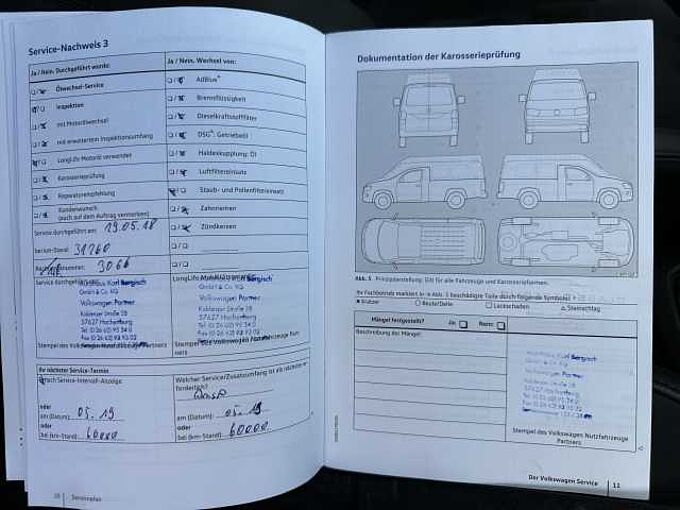 Service-Nachweis 3
Ja / Nein. Durchgeführt wurde:
Ölwechsel-Service
Inspektion
mit Motorölwechsel
mit erweitertem Inspektionsumfang
LongLife Motoröl verwendet
Karosserieprüfung
Reparaturempfehlung
Kundenwunsch
(auch auf dem Auftrag vermerken)
Service durchgeführt am: 19.05.18
bei km-Stand: 31760
3066
Service durchgeführt
Autohaus Karl Bergisch
GmbH & Co. KG
Volkswagen Partner
Koblenzer Straße 28
57627 Hachenburg
Ja / Nein. Wechsel von:
AdBlue®
Bremsflüssigkeit
Dieselkraftstofffilter
DSG®: Getriebeöl
Haldexkupplung: Öl
Luftfiltereinsatz
Staub- und Pollenfiltereinsatz
Zahnriemen
Zündkerzen
Volkswagen Partner
Koblenzer Straße 28
57627 Hachenburg
Ihr nächster Service-Termin
nach Service-Intervall-Anzeige
oder
am (Datum): 05.19
oder
bei (km-Stand): 60000
Welcher Service/Zusatzumfang ist als nächster
erforderlich?
am (Datum): 05.19
oder
bei (km-Stand): 60000
10 Serviceplan
Dokumentation der Karosserieprüfung
Abb. 5 Prinzipdarstellung: Gilt für alle Fahrzeuge und Karosserieformen.
Ihr Fachbetrieb markiert in ⇒ Abb. 5 beschädigte Teile durch folgende Symbole:
Kratzer
Beule/Delle
Lackschaden
Steinschlag
Mängel festgestellt?
Ja:
Nein:
Beschreibung der Mängel:
Autohaus Karl Bergisch
GmbH & Co. KG
Volkswagen Partner
Koblenzer Straße 28
57627 Hachenburg
Stempel des Volkswagen Nutzfahrzeuge
Partners
Der Volkswagen Service 11